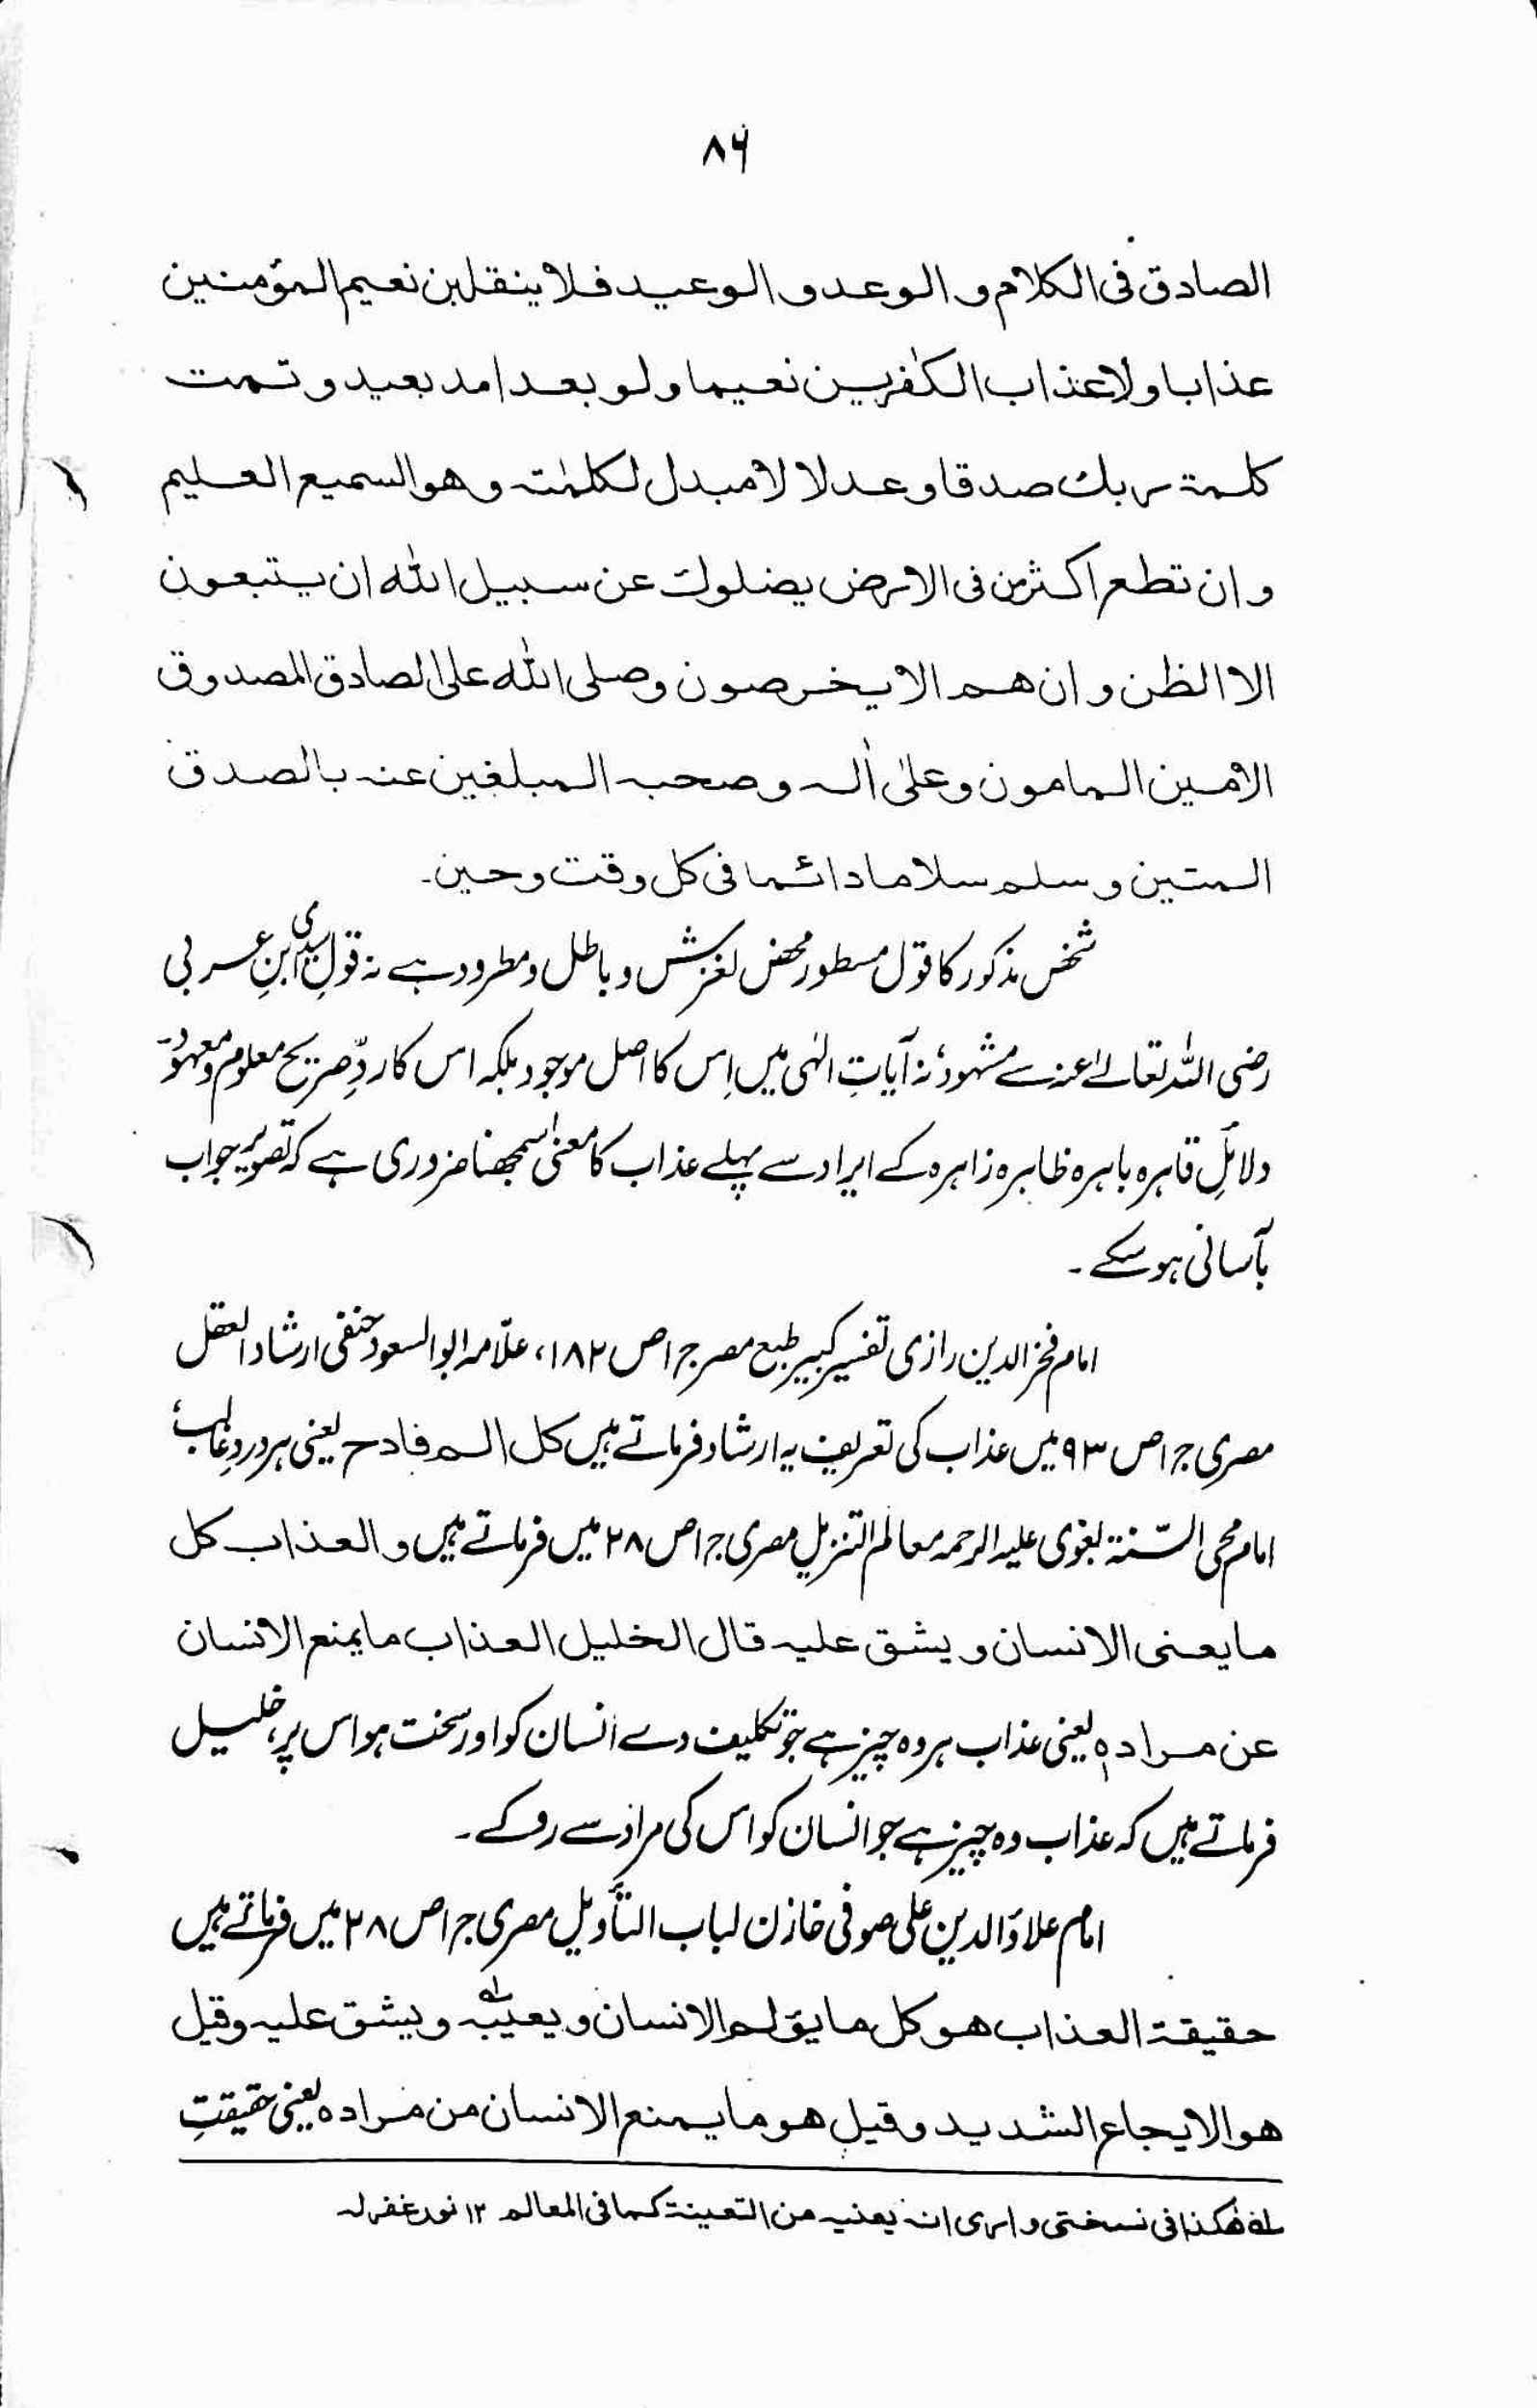 ۸۶
الصادق فی الکلام و الوعد و الوعید فلا ینقلبن نعیم المؤمنین
عذابا ولا عذاب الکٰفرین نعیما ولو بعد امد بعید و تمت
کلمۃ ربک صدقا و عدلا لا مبدل لکلمٰتہ و ھو السمیع العلیم
و ان تطع اکثر من فی الارض یضلوك عن سبیل اللہ ان یتبعون
الا الظن و ان ھم الا یخرصون وصلی اللہ علی الصادق المصدوق
الامین المامون وعلیٰ اٰلہ و صحبہ المبلغین عنہ بالصدق
المتین و سلم سلاما دائما فی کل وقت و حین۔
شخص مذکور کا قول مسطور محض لغزش و باطل و مطرود ہے نہ قولِ سیدی ابنِ عربی
رضی اللہ تعالےٰ عنہ سے مشہود، نہ آیاتِ الٰہی میں اِس کا اصل موجود بلکہ اس کا ردِّ صریح معلوم و معہود۔
دلائلِ قاہرہ باہرہ ظاہرہ زاہرہ کے ایراد سے پہلے عذاب کا معنیٰ سمجھنا ضروری ہے کہ تصویرِ جواب
بآسانی ہو سکے ۔
امام فخر الدین رازی تفسیر کبیر طبع مصر ج ۱ ص ۱۸۲، علّامہ ابوالسعود حنفی ارشاد العقل
مصری ج ۱ ص ۹۳ میں عذاب کی تعریف یہ ارشاد فرماتے ہیں کل الم فادح یعنی ہر دردِ غالب،
امام محی السّنۃ بغوی علیہ الرحمہ معالم التنزیل مصری ج ۱ ص ۲۸ میں فرماتے ہیں و العذاب کل
ما یعنی الانسان و یشق علیہ قال الخلیل العذاب ما یمنع الانسان
عن مرادہ یعنی عذاب ہر وہ چیز ہے جو تکلیف دے انسان کو اور سخت ہو اس پر، خلیل
فرماتے ہیں کہ عذاب وہ چیز ہے جو انسان کو اس کی مراد سے روکے ۔
امام علاؤ الدین علی صوفی خازن لباب التأویل مصری ج ۱ ص ۲۸ میں فرماتے ہیں
حقیقۃ العذاب ھو کل ما یؤلم الانسان و یعیبہ لہ و یشق علیہ وقیل
ھو الایجاع الشدید و قیل ھو ما یمنع الانسان من مرادہ یعنی حقیقتِ
لہ ھٰکذا فی نسختی و اری انہ یعنیہ من التعینۃ کما فی المعالم ۱۲ نور غفرلہ